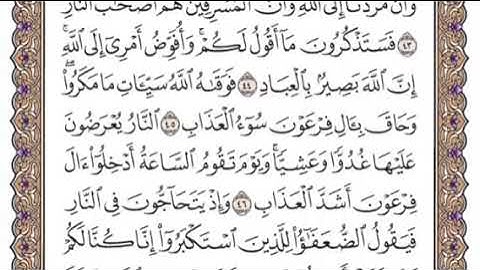 وَأَنَّ مَرَدَّنَآ إِلَى ٱللَّهِ وَأَنَّ ٱلْمُسْرِفِينَ هُمْ أَصْحَٰبُ ٱلنَّارِ
٤٣ فَسَتَذْكُرُونَ مَآ أَقُولُ لَكُمْ ۚ وَأُفَوِّضُ أَمْرِىٓ إِلَى ٱللَّهِ ۚ
إِنَّ ٱللَّهَ بَصِيرٌۢ بِٱلْعِبَادِ ٤٤ فَوَقَىٰهُ ٱللَّهُ سَيِّـَٔاتِ مَا مَكَرُوا۟ ۖ
وَحَاقَ بِـَٔالِ فِرْعَوْنَ سُوٓءُ ٱلْعَذَابِ ٤٥ ٱلنَّارُ يُعْرَضُونَ
عَلَيْهَا غُدُوًّا وَعَشِيًّا ۖ وَيَوْمَ تَقُومُ ٱلسَّاعَةُ أَدْخِلُوٓا۟ ءَالَ
فِرْعَوْنَ أَشَدَّ ٱلْعَذَابِ ٤٦ وَإِذْ يَتَحَآجُّونَ فِى ٱلنَّارِ
فَيَقُولُ ٱلضُّعَفَٰٓؤُا۟ لِلَّذِينَ ٱسْتَكْبَرُوٓا۟ إِنَّا كُنَّا لَكُمْ